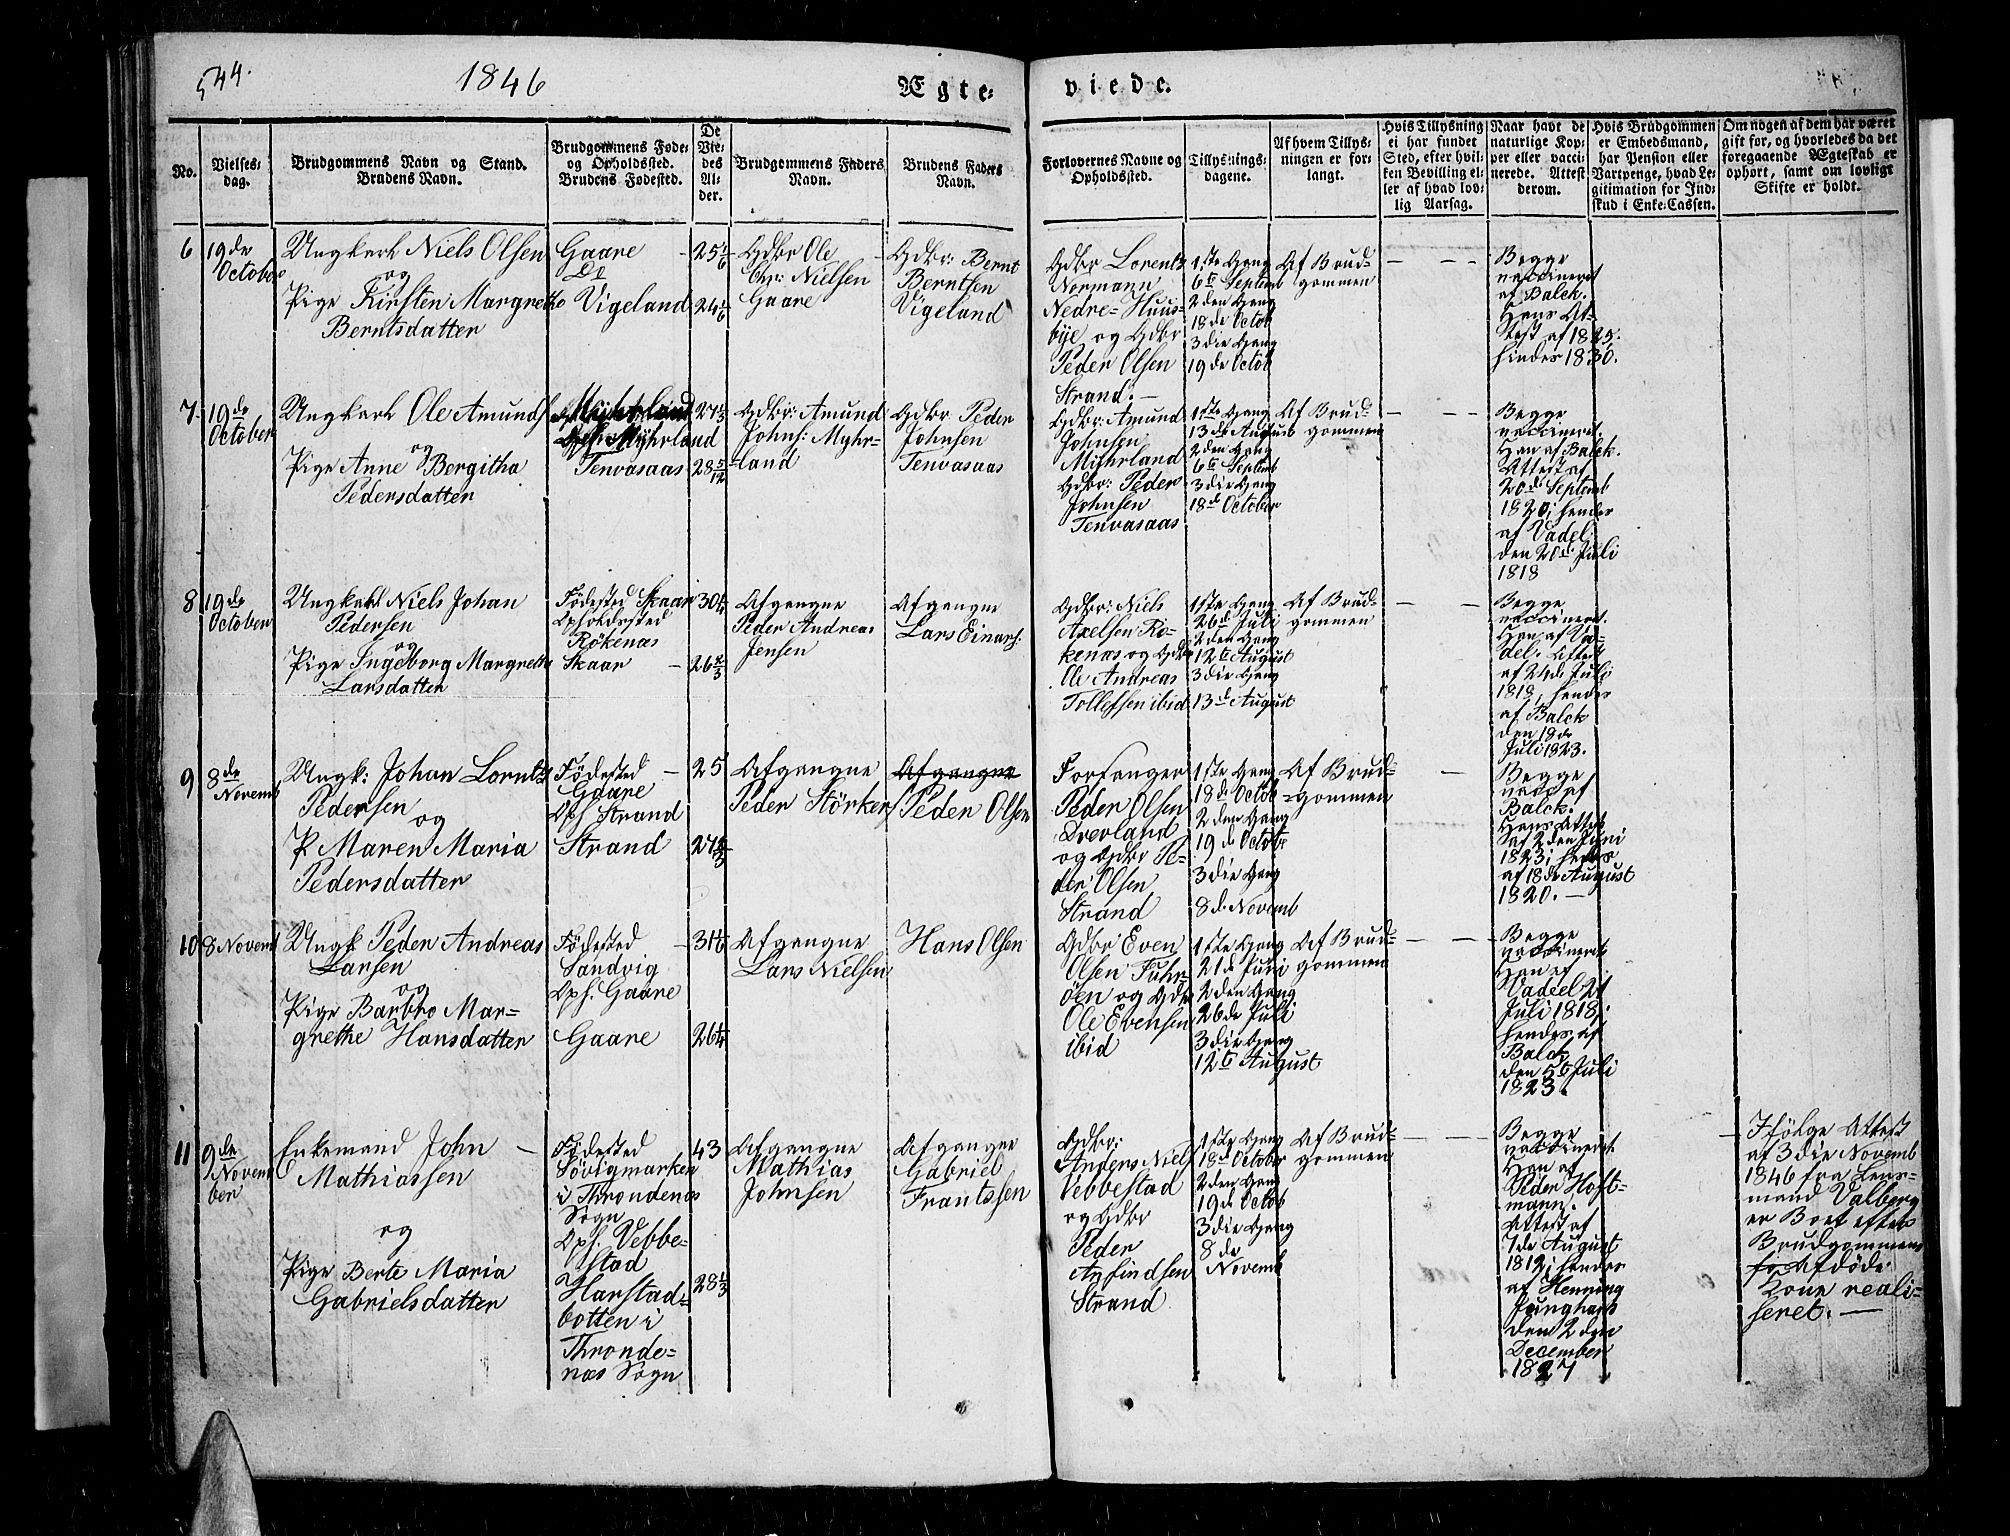 544.
1846
Ægte-
viede.
No.
Vielses-
dag.
Brudgommens Navn og Stand.
Brudens Navn.
Brudgommens Føde-
og Opholdssted.
Brudens Fødested.
De
Vie-
des
Al-
der.
Brudgommens Faders
Navn.
Brudens Faders
Navn.
Forlovernes Navne og
Opholdssted.
Tillysnings-
dagene.
Af hvem Tillys-
ningen er for-
langt.
Hvis Tillysning
ei har fundet
Sted, efter hvil-
ken Bevilling el-
ler af hvad lov-
lig Aarsag.
Naar havt de
naturlige Kop-
per eller vacci-
nerede. Attest
derom.
Hvis Brudgommen
er Embedsmand,
har Pension eller
Vartpenge, hvad Le-
gitimation for Ind-
skud i Enke-Cassen.
Om nogen af dem har været
gift før, og hvorledes da det
foregaaende Ægteskab er
ophørt, samt om lovligt
Skifte er holdt.
6
19de
October
Ungkarl Niels Olsen
og
Pige Kirsten Margrethe
Berntsdatter
Gaare
Do
Vigeland
25 1/6
24 1/6
Gdbr Ole
Chr: Nielsen
Gaare
Gdbr: Bernt
Berntsen
Vigeland
Gdbr Lorentz
Normann
Nedre-Huus-
bye og Gdbr
Peder Olsen
Strand. -
1ste Gang
6te Septemb
2den Gang
18de Octob
3die Gang
19de Octob
Af Brud-
gommen
Begge
vaccineret
af Balck.
Hans At-
test af 1825.
hindes 1830.
7
19de
October
Ungkarl Ole Amunds
og
Pige Anne Bergitha
Pedersdatter
Oph. Myhrland
Tenvasaas
27 1/3
28 5/12
Gdbr: Amund
Johns: Myhr-
land
Gdbr Peder
Johnsen
Tenvasaas
Gdbr: Amund
Johnsen
Myhrland
Gdbr: Peder
Johnsen
Tenvasaas
1ste Gang
13de August
2den Gang
6te Septemb
3die Gang
18de October
Af Brud-
gommen
Begge
vaccineret.
Han af Balck.
Attest af
20de Septemb
1820, hendes
af Vadel
den 20de Juli
1818
8
19de
October
Ungkarl Niels Johan
Pedersen
og
Pige Ingeborg Margrethe
Larsdatter
Fødested Skaar
Opholdssted
Rökenæs
Skaar
30 1/4
26 2/3
Afgangne
Peder Andreas
Jensen
Afgangne
Lars Einars:
Gdbr: Niels
Axelsen Rö-
kenæs og Gdbr
Ole Andreas
Tollefsen ibid
1ste Gang
26de Juli
2den Gang
12te August
3die Gang
13de August
Af Brud-
gommen
Begge
vaccineret.
Han af Va-
del. Attest
af 24de Juli
1818, hendes
af Balck
den 18de
Juli 1823.
9
8de
Novemb
Ungk: Johan Lorntz
Pedersen
og
P Maren Maria
Pedersdatter
Fødested
Gaare
Oph Strand
Strand
25
27 2/3
Afgangne
Peder Störkers
Afgangne
Peder Olsen
Forfanger
Peder Olsen
Brevland
og Gdbr Pe-
der Olsen
Strand
1ste Gang
18de Octob
2den Gang
19de Octob
3die Gang
8de Novemb
Af Brud-
gommen
Begge
vacc af
Balck.
Hans Attest
af 2den Juni
1823, hendes
af 18de August
1820. -
10
8 Novemb
Ungk Peder Andreas
Larsen
og
Pige Barbro Mar-
grethe Hansdatter
Fødested
Sandvig
Oph. Gaare
Gaare
31 1/6
26 1/4
Afgangne
Lars Nielsen
Hans Olsen
Gdbr Even
Olsen Fuhr-
öen og Gdbr
Ole Evensen
ibid
1ste Gang
21de Juni
2den Gang
26de Juli
3die Gang
12te August
Af Brud-
gommen
Begge
vaccineret
Han af
Vadeel 21
Juli 1818,
hendes af
Balck
den 5te Juli
1823.
11
9de
Novem-
ber
Enkemand John
Mathiassen
og
Pige Berte Maria
Gabrielsdatter
Fødested
Sövigmarken
i Throndenæs
Sogn
Oph. Vebbe-
stad
Harstad-
botten i
Thronde-
næs Sogn
43
28 1/3
Afgangne
Mathias
Johnsen
Afgangne
Gabriel
Frantssen
Gdbr:
Anders Niels
Vebbestad
og Gdbr
Peder
Anfindsen
Strand
1ste Gang
18de October
2den Gang
19de Octob
3die Gang
8de
Novemb
Af Brud-
gommen
Begge
vaccineret
Han af
Peder Hoft-
mann.
Attest af
7de August
1812, hendes
af Henning
Junghans
den 2den
December
1827
Ifölge Attest
af 3die Novemb
1846 fra Lens-
mand Valberg
er Boet efter
Brudgommens
afdöde
Kone reali-
seret. -